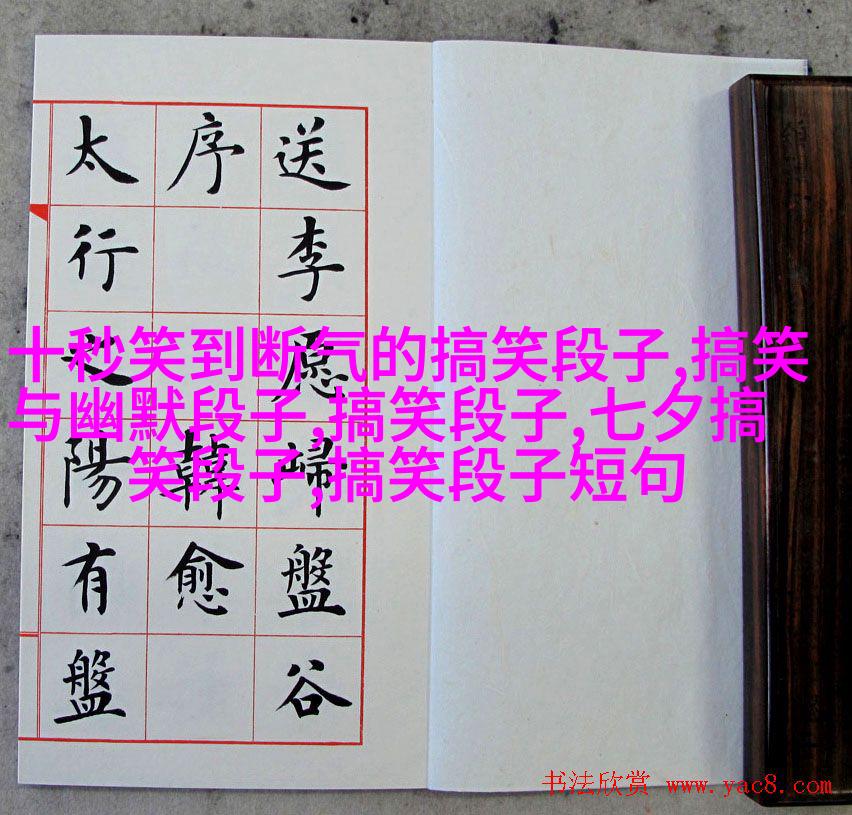 送李愿歸盤谷
序 韓愈
太行之陽有盤
十秒笑到断气的搞笑段子,搞笑
与幽默段子,搞笑段子,七夕搞
笑段子,搞笑段子短句
书法欣赏 www.yac8.com